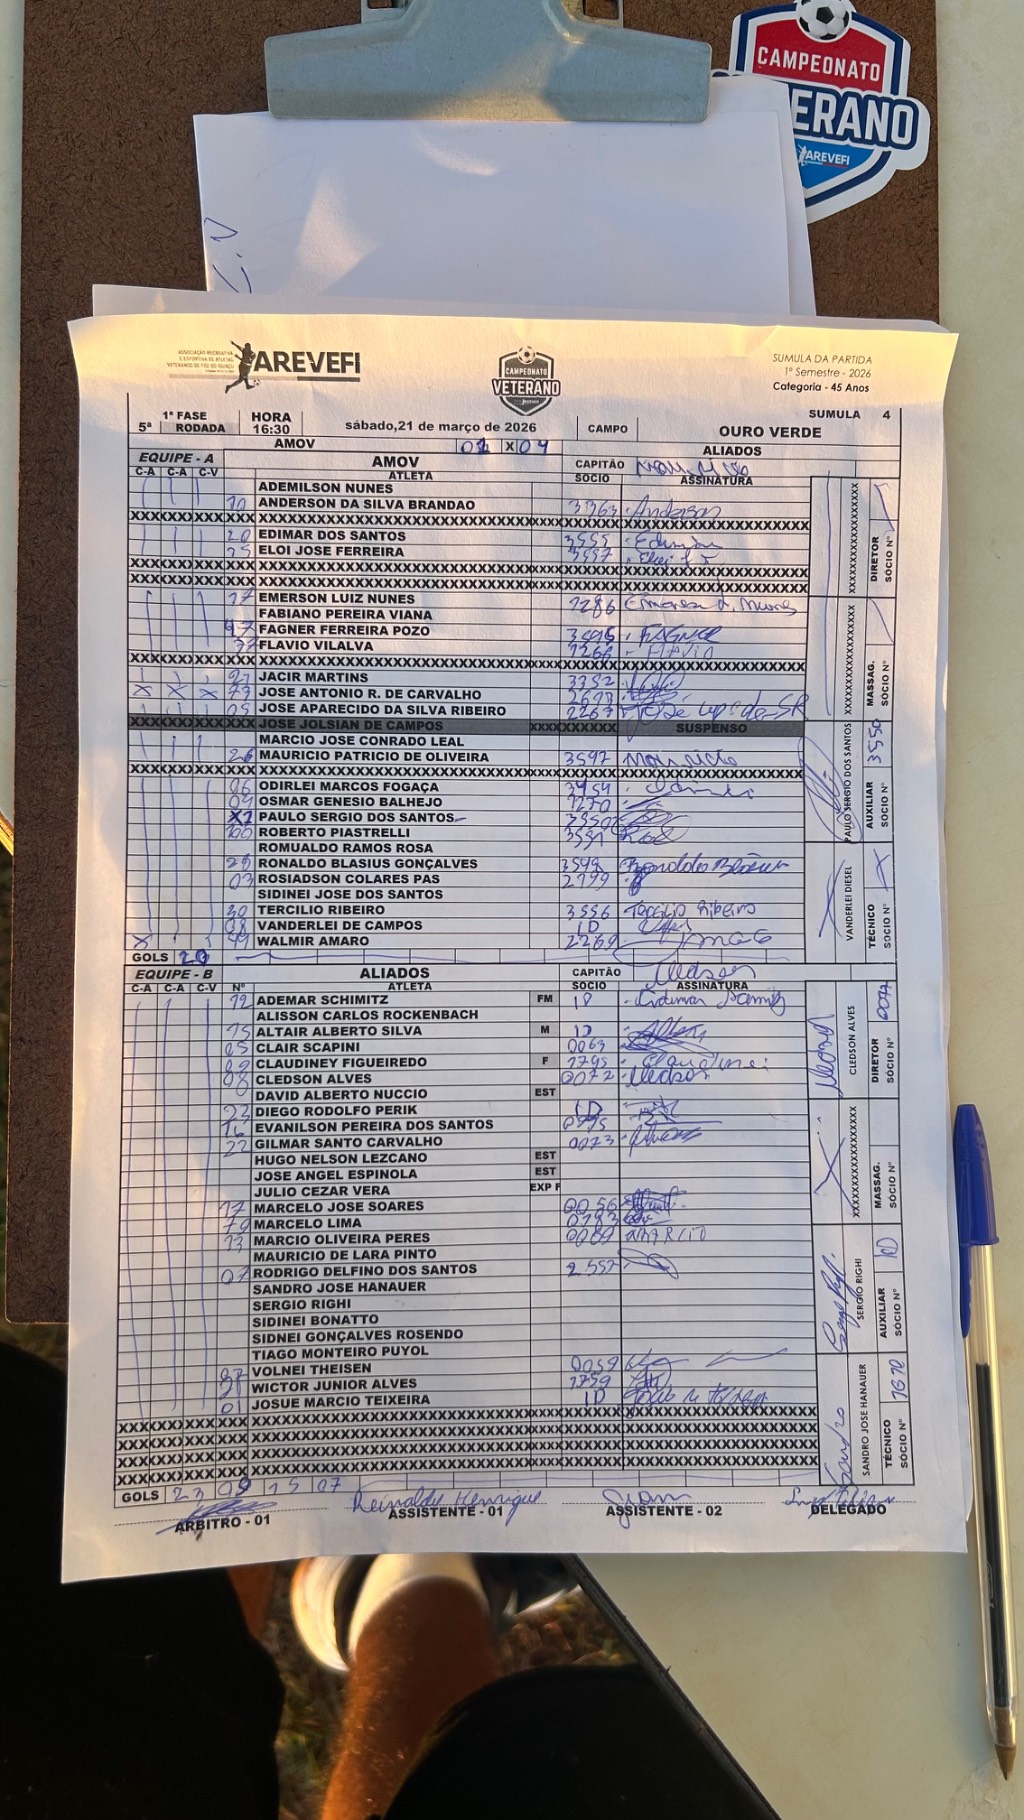 CAMPEONATO
ERANO
AREVEFI
C.V
ASSOCIAÇÃO RECREATIVA
E ESPORTIVA DE ATLETAS
VETERANOS DE FOZ DO IGUAÇU
AREVEFI
CAMPEONATO
VETERANO
SUMULA DA PARTIDA
1º Semestre - 2026
Categoria - 45 Anos
SUMULA 4
5ª 1ª FASE RODADA HORA 16:30 sábado,21 de março de 2026 CAMPO OURO VERDE
AMOV X 04 ALIADOS
EQUIPE - A AMOV CAPITÃO
C-A C-A C-V ATLETA SOCIO ASSINATURA
ADEMILSON NUNES
10 ANDERSON DA SILVA BRANDAO 3363 Anderson
XXXXXXXXXXXXXXXXXXXXXXXXXXXXXXXXXXXXXX
20 EDIMAR DOS SANTOS 3555
25 ELOI JOSE FERREIRA 3557
XXXXXXXXXXXXXXXXXXXXXXXXXXXXXXXXXXXXXX
XXXXXXXXXXXXXXXXXXXXXXXXXXXXXXXXXXXXXX
17 EMERSON LUIZ NUNES 2286 Emerson L. Nunes
FABIANO PEREIRA VIANA
47 FAGNER FERREIRA POZO FAGNER
37 FLAVIO VILALVA FLAVIO
XXXXXXXXXXXXXXXXXXXXXXXXXXXXXXXXXXXXXX
21 JACIR MARTINS 3352
X X X 73 JOSE ANTONIO R. DE CARVALHO 2697
05 JOSE APARECIDO DA SILVA RIBEIRO 2267
XXXXXXXXX JOSE JOLSIAN DE CAMPOS XXXXXXXXXX SUSPENSO
MARCIO JOSE CONRADO LEAL
26 MAURICIO PATRICIO DE OLIVEIRA 3597
XXXXXXXXXXXXXXXXXXXXXXXXXXXXXXXXXXXXXX
06 ODIRLEI MARCOS FOGAÇA 3454
04 OSMAR GENESIO BALHEJO 1270
PAULO SERGIO DOS SANTOS 3550
100 ROBERTO PIASTRELLI 3551
ROMUALDO RAMOS ROSA
29 RONALDO BLASIUS GONÇALVES 3549 Ronaldo Blasius
03 ROSIADSON COLARES PAS 2199
SIDINEI JOSE DOS SANTOS
30 TERCILIO RIBEIRO 3556 Tercilio Ribeiro
08 VANDERLEI DE CAMPOS ID
X 49 WALMIR AMARO 2269
GOLS 20
XXXXXXXXXXXXXXXX DIRETOR SÓCIO Nº
XXXXXXXXXXXXXXXX MASSAG. SÓCIO Nº
PAULO SERGIO DOS SANTOS AUXILIAR SÓCIO Nº 3550
VANDERLEI DIESEL TÉCNICO SÓCIO Nº X
EQUIPE - B ALIADOS CAPITÃO Cledson
C-A C-A C-V Nº ATLETA SOCIO ASSINATURA
12 ADEMAR SCHIMITZ FM ID
ALISSON CARLOS ROCKENBACH
15 ALTAIR ALBERTO SILVA M ID
25 CLAIR SCAPINI 0063
89 CLAUDINEY FIGUEIREDO F 1795 Claudinei
08 CLEDSON ALVES 0072 Cledson
DAVID ALBERTO NUCCIO EST
23 DIEGO RODOLFO PERIK ID
16 EVANILSON PEREIRA DOS SANTOS
22 GILMAR SANTO CARVALHO 0073
HUGO NELSON LEZCANO EST
JOSE ANGEL ESPINOLA EST
JULIO CEZAR VERA EXP F
17 MARCELO JOSE SOARES 0056
79 MARCELO LIMA 0783
13 MARCIO OLIVEIRA PERES 0069 MARCIO
MAURICIO DE LARA PINTO
07 RODRIGO DELFINO DOS SANTOS 2557
SANDRO JOSE HANAUER
SERGIO RIGHI
SIDINEI BONATTO
SIDNEI GONÇALVES ROSENDO
TIAGO MONTEIRO PUYOL
VOLNEI THEISEN 0059
WICTOR JUNIOR ALVES 1759
01 JOSUE MARCIO TEIXEIRA ID
XXXXXXXXXXXXXXXXXXXXXXXXXXXXXXXXXXXXXX
XXXXXXXXXXXXXXXXXXXXXXXXXXXXXXXXXXXXXX
XXXXXXXXXXXXXXXXXXXXXXXXXXXXXXXXXXXXXX
XXXXXXXXXXXXXXXXXXXXXXXXXXXXXXXXXXXXXX
GOLS 23 09 15 07
Cledson CLEDSON ALVES DIRETOR SÓCIO Nº
XXXXXXXXXXXXXXXX MASSAG. SÓCIO Nº
SERGIO RIGHI AUXILIAR SÓCIO Nº ID
Sandro SANDRO JOSE HANAUER TÉCNICO SÓCIO Nº 1670
Reinaldo Henrique
ARBITRO - 01 ASSISTENTE - 01 ASSISTENTE - 02 DELEGADO